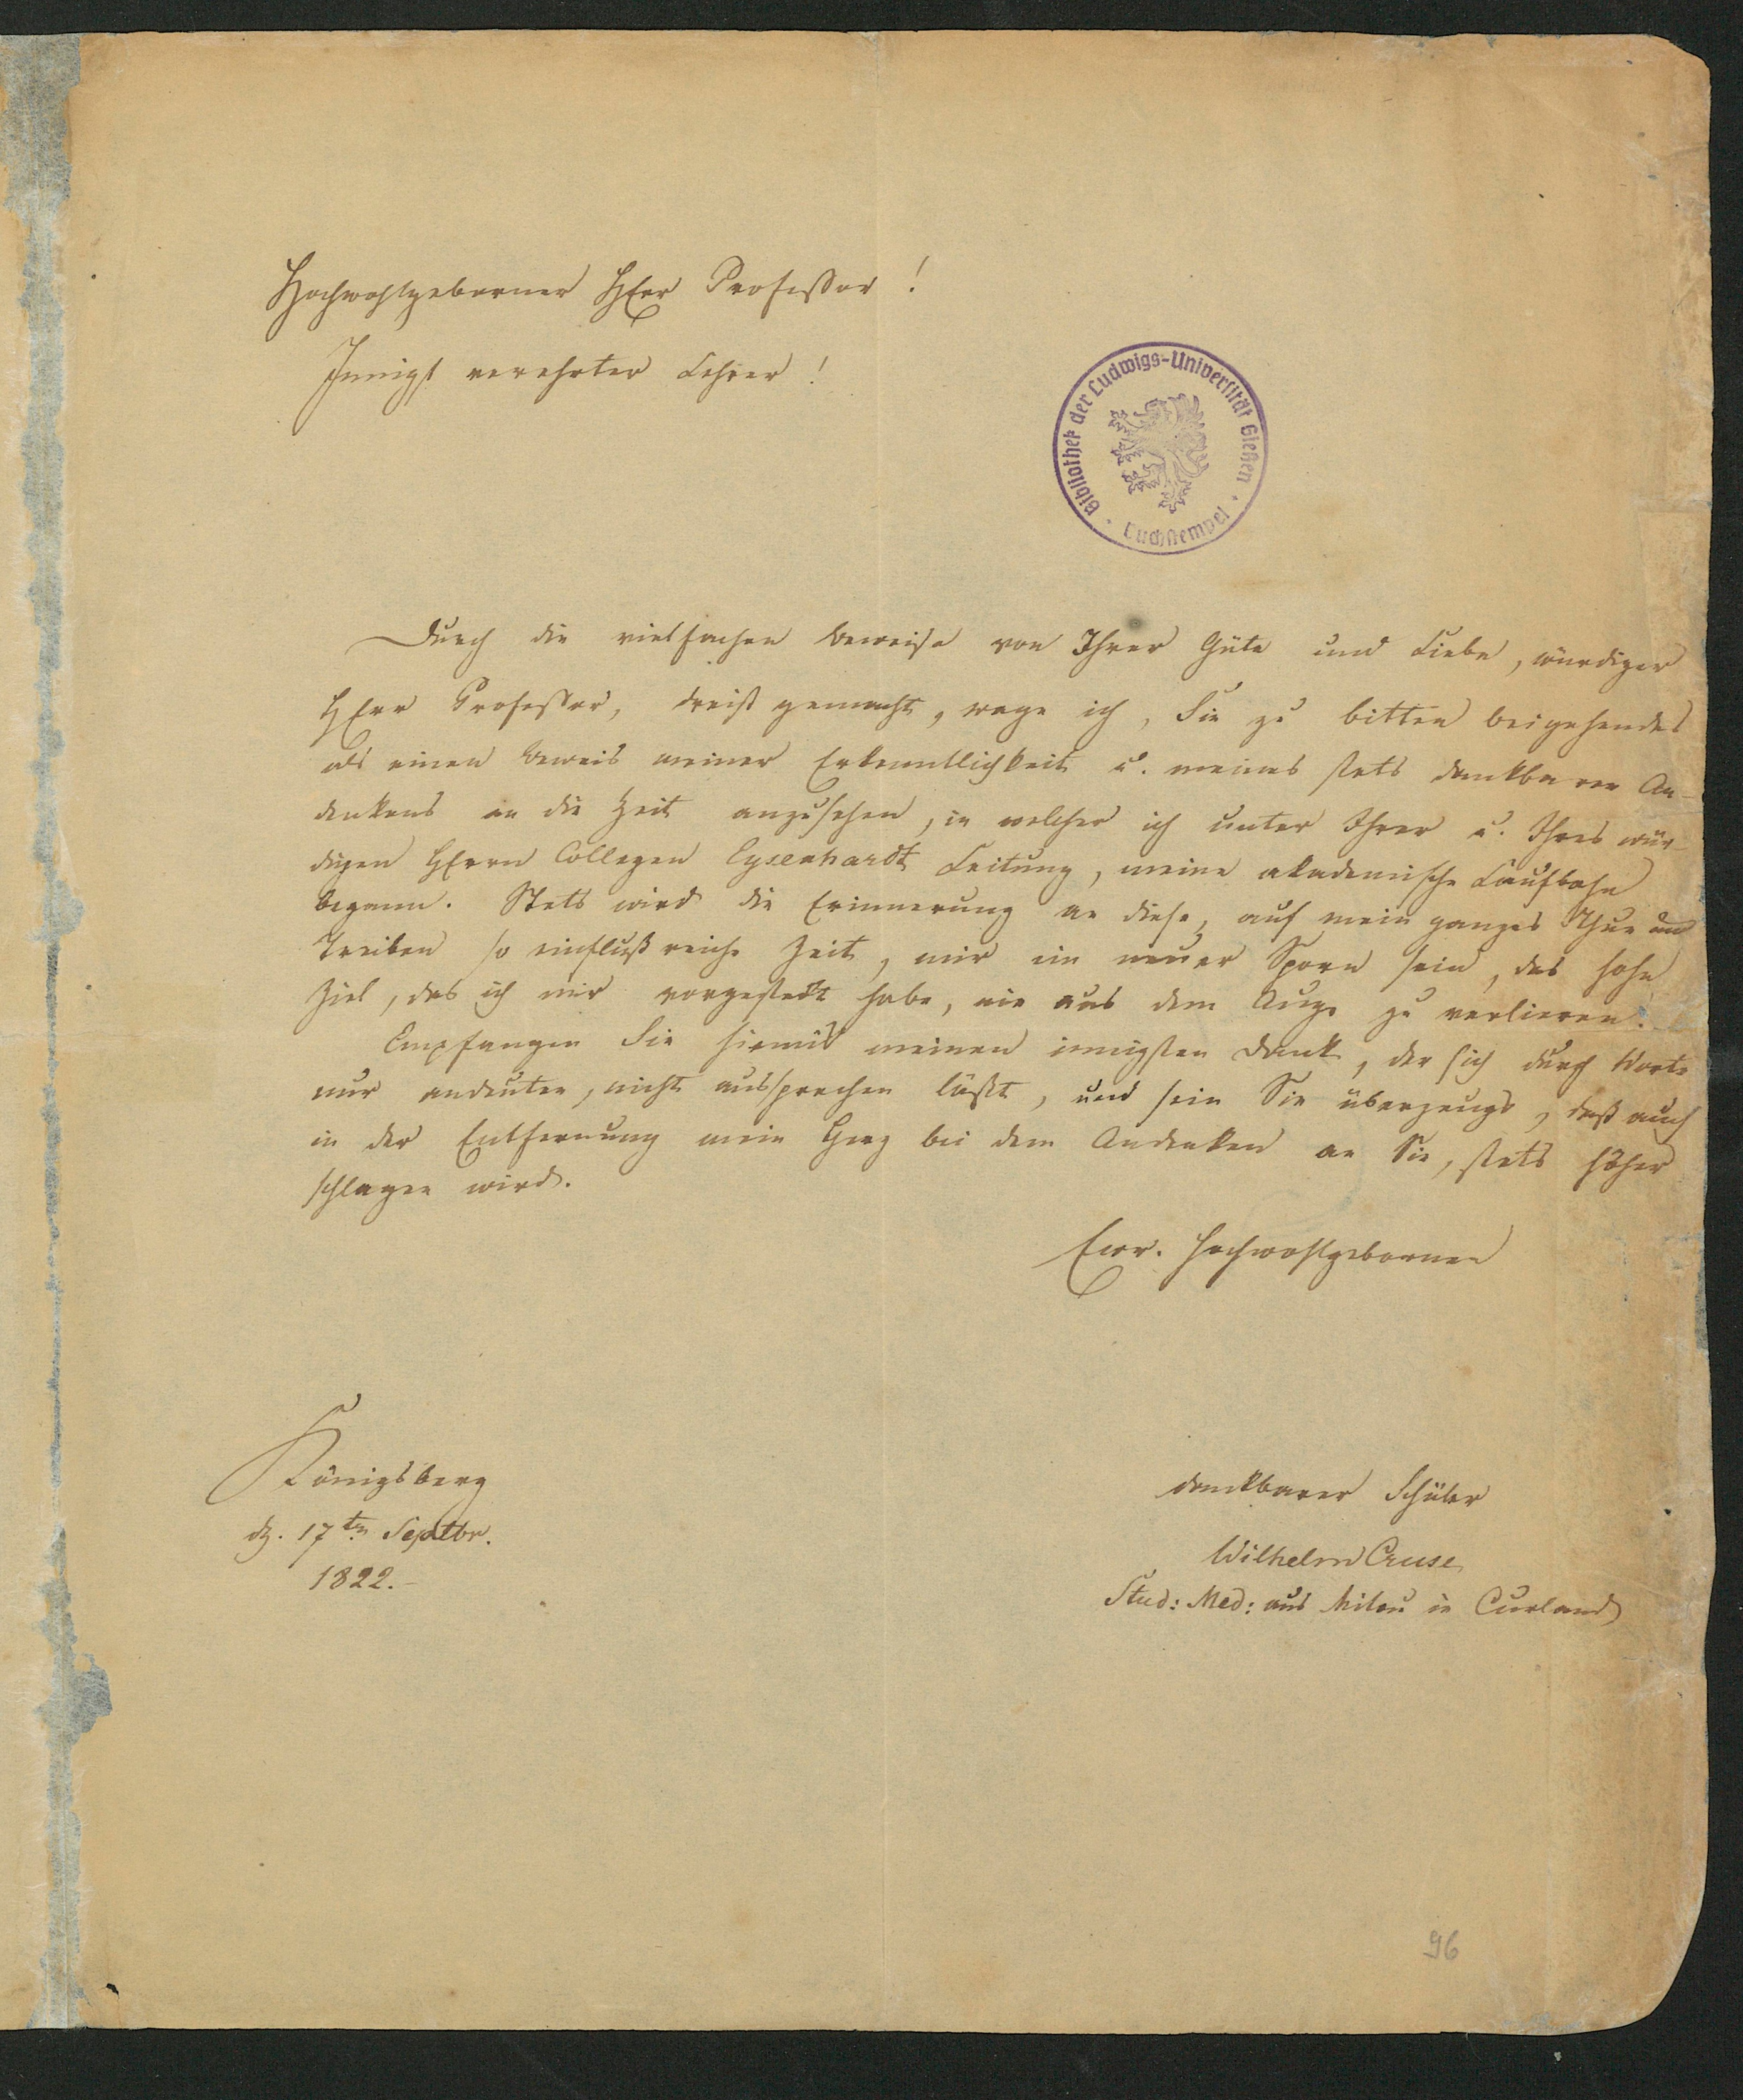 Hochwohlgeborner HErr Professor!
Innigst verehrter Lehrer!
Bibliothek der Ludwigs-Universität Gießen
Buchstempel
Durch die vielfachen Beweise von Ihrer Güte und Liebe, würdiger
HErr Professor, dreist gemacht, wage ich, Sie zu bitten beigehendes
als einen Beweis meiner Erkenntlichkeit u. meines stets dankbaren An-
denkens an die Zeit anzusehen, in welcher ich unter Ihrer u. Ihres wür-
digen HErrn Collegen Eysenhardt Leitung, meine akademische Laufbahn
begann. Stets wird die Erinnerung an diese, auf mein ganzes Thun und
Treiben so einflußreiche Zeit, mir ein neuer Sporn sein, das hohe
Ziel, das ich mir vorgesteckt habe, nie aus dem Auge zu verlieren.
Empfangen Sie hiemit meinen innigsten Dank, der sich durch Worte
nur andeuten, nicht aussprechen läßt, und sein Sie überzeugt, daß auch
in der Entfernung mein Herz bei dem Andenken an Sie, stets höher
schlagen wird.
Ewr. Hochwohlgebornen
Königsberg
d. 17ten Septbr.
1822.-
dankbarer Schüler
Wilhelm Cruse
Stud: Med: aus Mitau in Curland
96